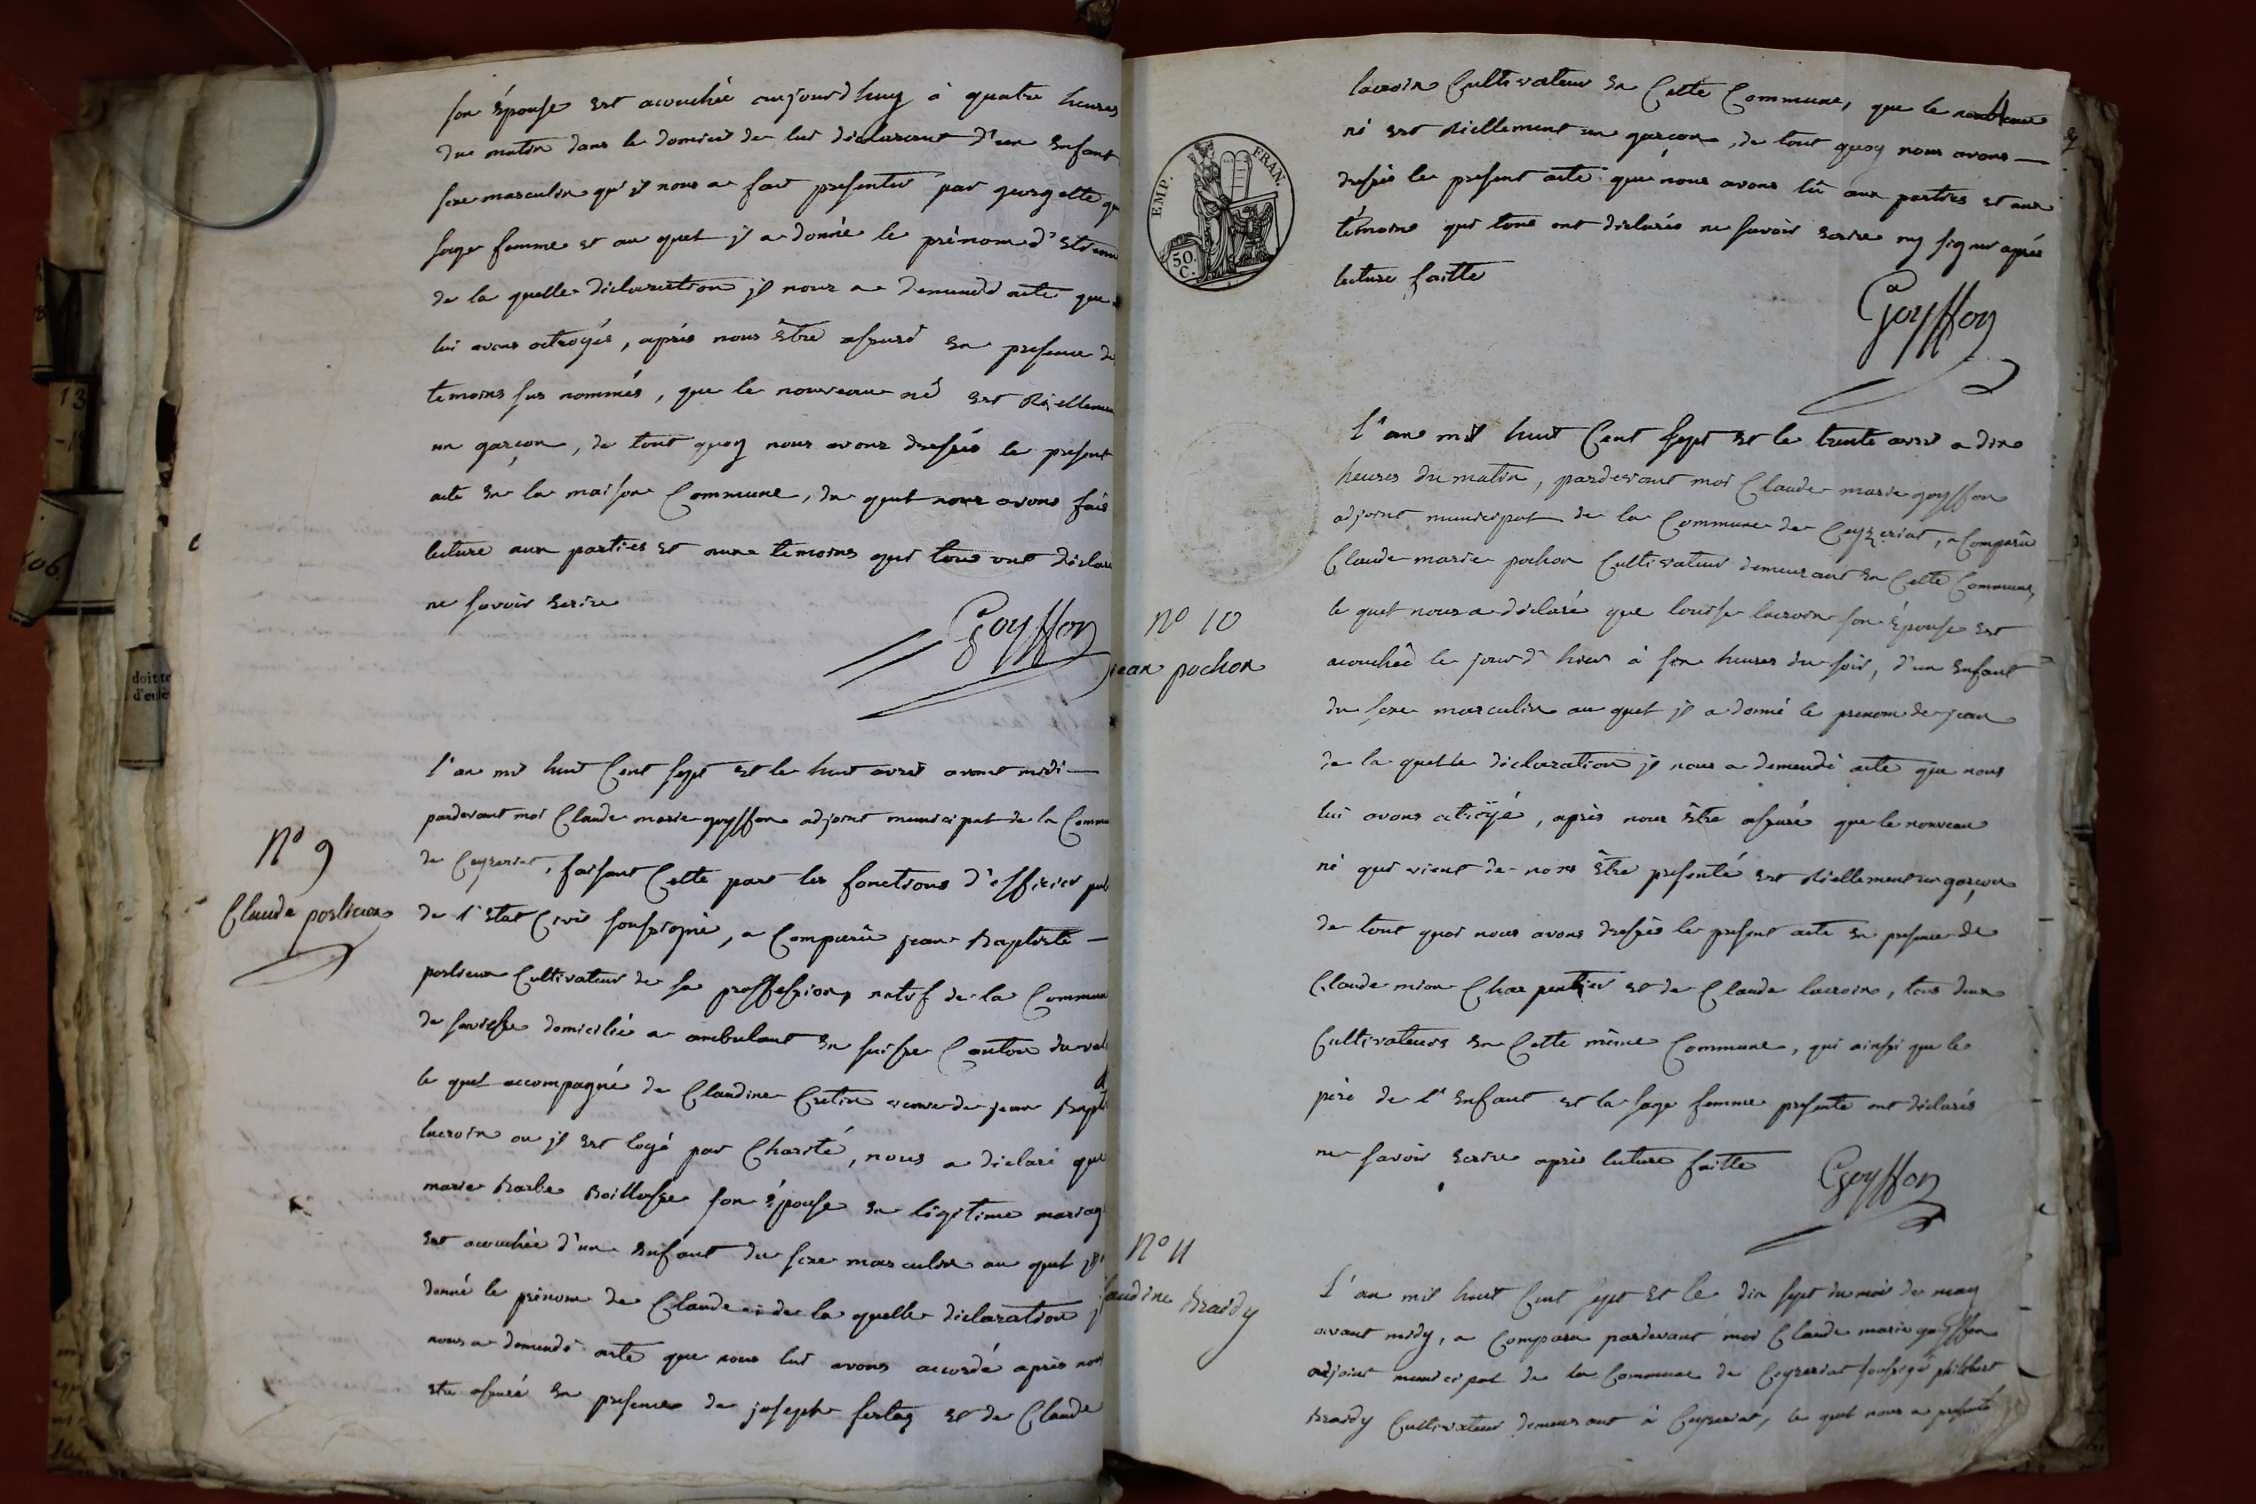 son épouse est acouchée aujourd huy à quatre heures
du matin dans le domicil de lui déclarant d'un Enfant
sexe masculin qu'il nous a fait presenter par georgette
sage femme et au quel il a donné le prénom d'
de la quelle déclaration il nous a demandé acte que
lui avons octroyés, après nous être assuré en presence de
temoins sus nommés, que le nouveau né est réellement
un garçon, de tout quoy nous avons dressés le present
acte en la maison Commune, du quel nous avons fait
lecture aux parties et aux temoins qui tous ont déclaré
ne savoir Ecrire
Goyffon
N° 9
Claude poslieux
l'an mil huit Cent sept et le huit avril avant midi
pardevant moi Claude marie goyffon adjoint municipal de la Commu
de Ceyzeriat, faisant Cette part les fonctions d'officier pub
de l'Etat Civil soussigné, a Comparû jean Baptiste
poslieux Cultivateur de sa proffession, natif de la Commune
de domicilié a ambulant en suisse Canton du
le quel accompagné de Claudine Cretin veuve de jean Bapt
lacroix ou il est logé par Charité, nous a déclaré que
marie Barbe son épouse en légitime mariag
est acouchée d'un Enfant du sexe masculin au quel il
donné le prénom de Claude de la quelle déclaration
nous a demandé acte que nous lui avons accordé après nous
etre assuré en presence de joseph et de Claude
lacroix Cultivateur en Cette Commune, que le nouveau
né est réellement un garçon, de tout quoy nous avons
dressés le present acte que nous avons lû aux parties et aux
témoins qui tous ont déclarés ne savoir Ecrire ny signer après
lecture faitte
EMP. FRAN.
50. C.
Goyffon
N° 10
jean pochon
l'an mil huit Cent sept et le trente avril a dix
heures du matin, pardevant moi Claude marie goyffon
adjoint municipal de la Commune de Ceyzeriat, a Comparû
Claude marie pochon Cultivateur demeurant en Cette Commune,
le quel nous a déclaré que louise lacroix son Épouse est
acouchée le jour d'hier à six heures du soir, d'un Enfant
du sexe masculin au quel il a donné le prenom de jean
de la quelle déclaration il nous a demandé acte que nous
lui avons , après nous être assuré que le nouveau
né qui vient de nous être presenté est réellement un garçon
de tout quoi nous avons dressés le present acte en presence de
Claude mion Charpentier et de Claude lacroix, tous deux
Cultivateurs en Cette même Commune, qui ainsi que le
père de l'Enfant et la sage femme presente ont déclarés
ne savoir Ecrire après lecture faitte
Goyffon
N° 11
laudine Braidy
L'an mil huit Cent sept et le dix sept du mois de may
avant midy, a Comparu pardevant moi Claude marie goyffon
adjoint municipal de la Commune de Ceyzeriat soussigné philibert
Braidy Cultivateur demeurant à Ceyzeriat, le quel nous a presenté